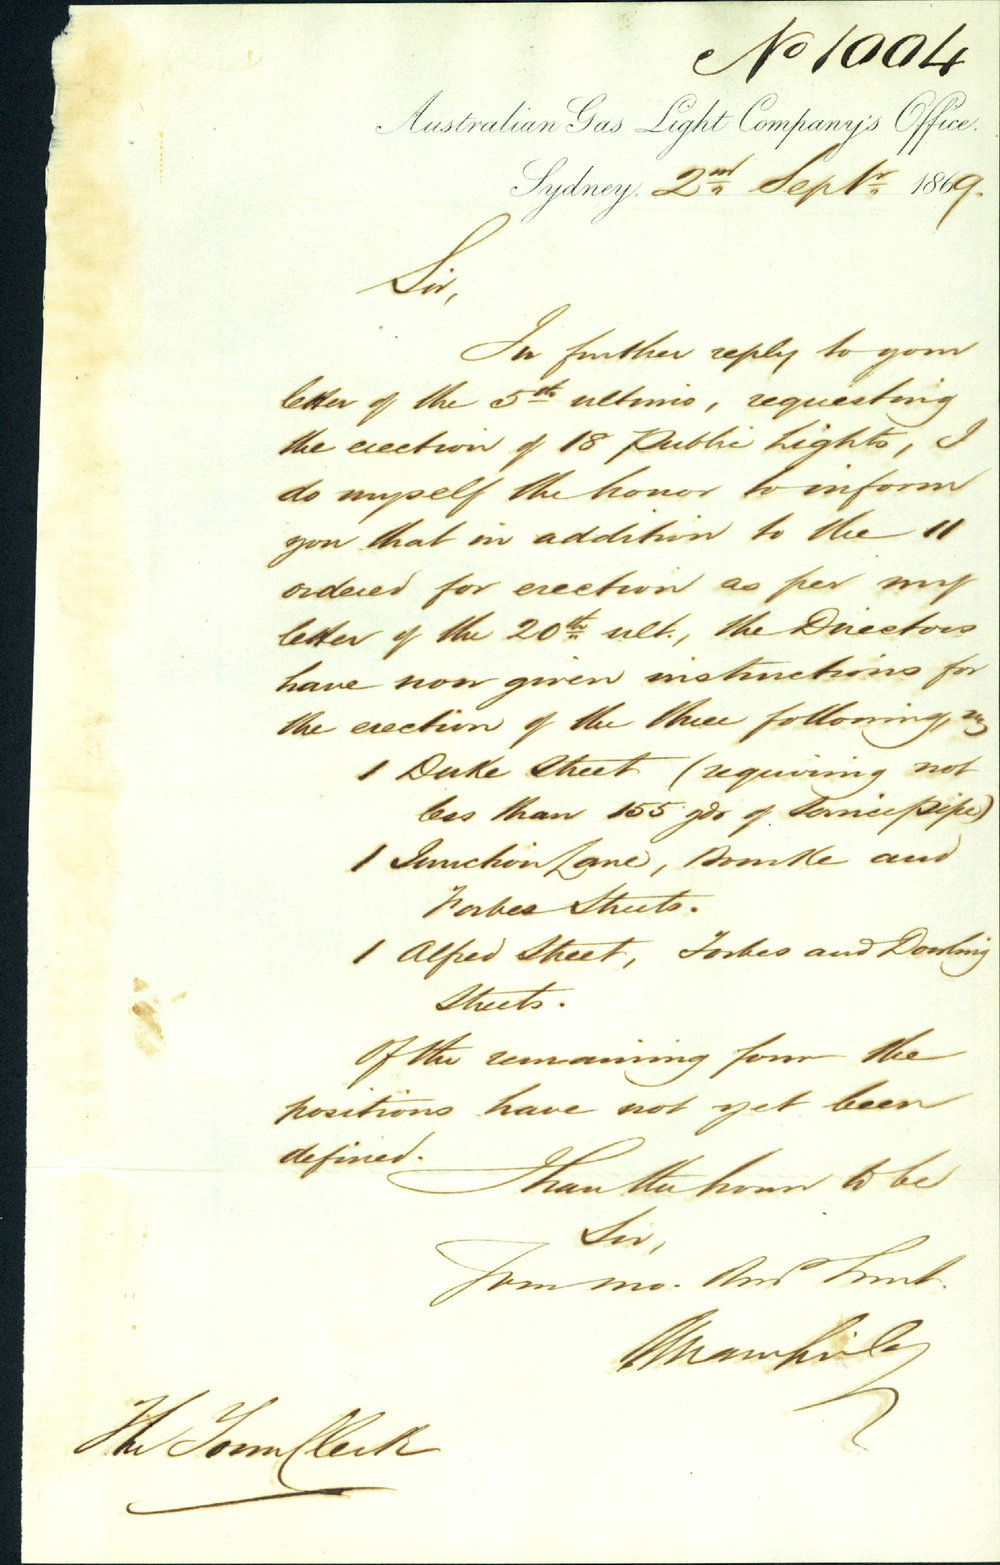 No 1004
Australian Gas Light Company's Office.
Sydney, 2nd Septr 1869.
Sir,
In further reply to your
letter of the 5th ultimo, requesting
the erection of 18 Public Lights, I
do myself the honor to inform
you that in addition to the 11
ordered for erection as per my
letter of the 20th ult., the Directors
have now given instructions for
the erection of the three following,
1 Duke Street (requiring not
less than 155 yds of Service pipe)
1 Junction Lane, Bourke and
Forbes Streets.
1 Alfred Street, Forbes and Dowling
Streets.
Of the remaining four the
positions have not yet been
defined.
I have the honor to be
Sir,
Your mo. Obd Servt.
The Town Clerk